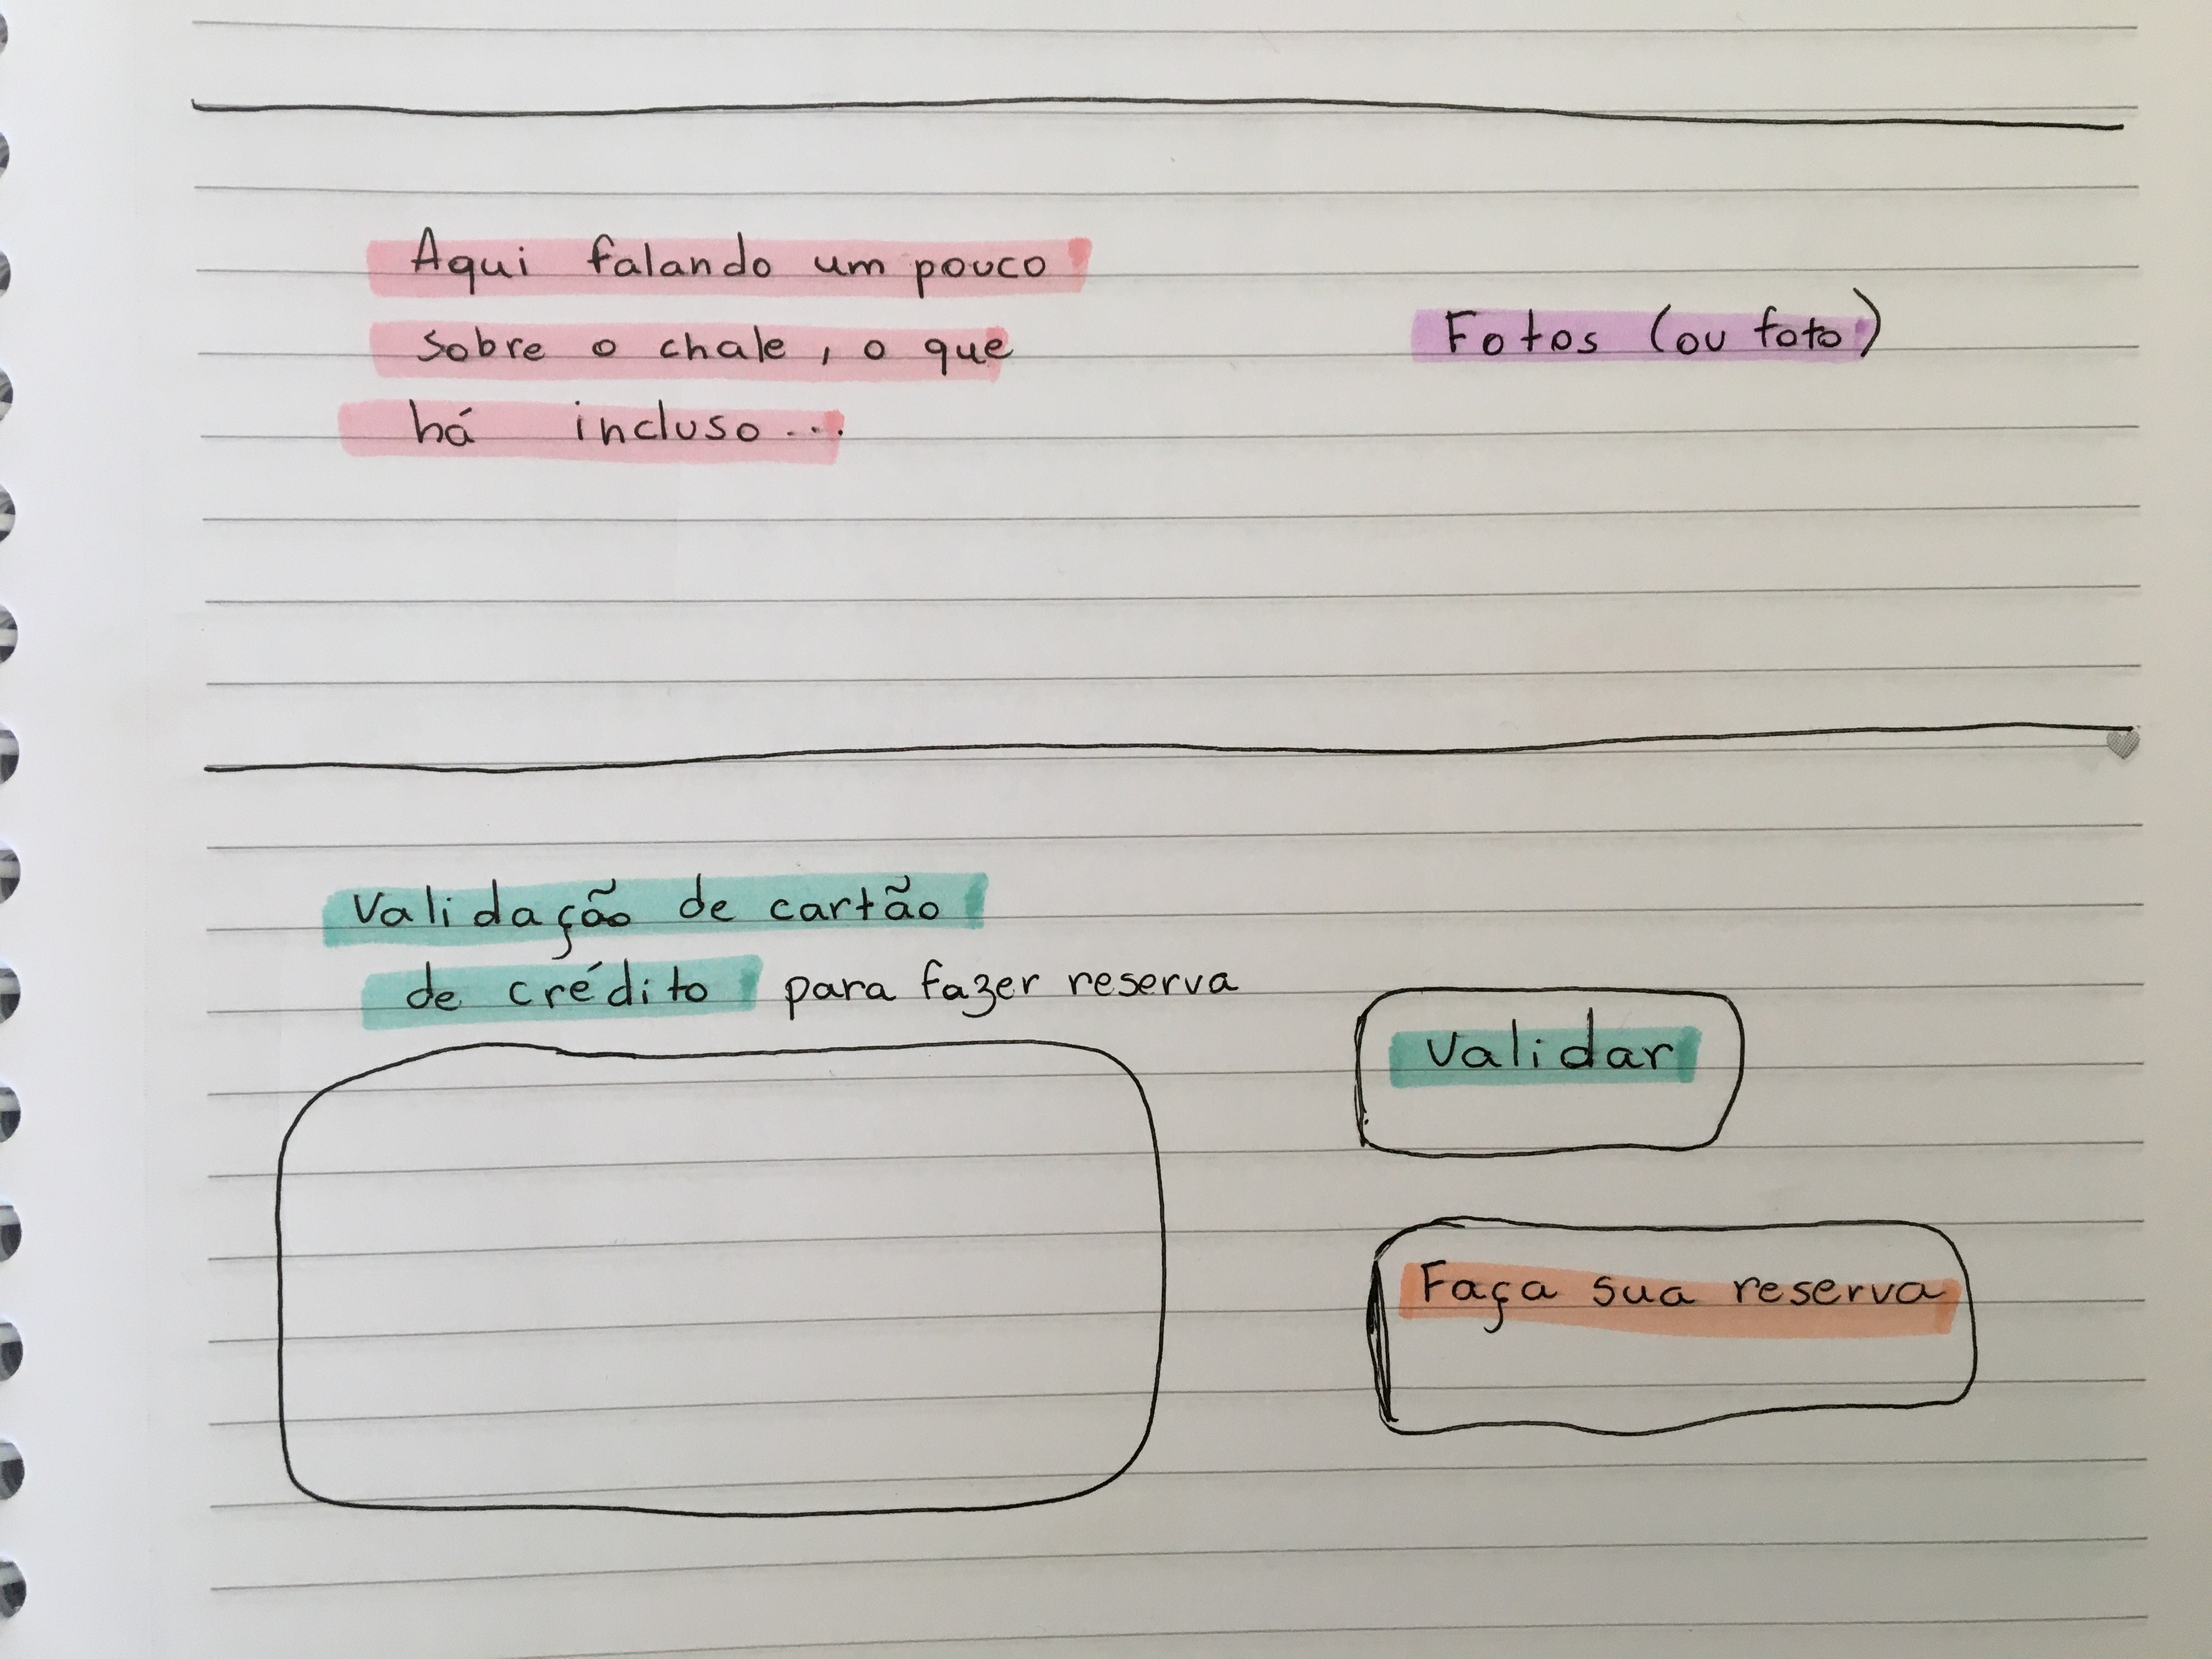 Aqui falando um pouco
sobre o chale, o que
há incluso...
Fotos (ou foto)
Validação de cartão
de crédito para fazer reserva
Validar
Faça sua reserva